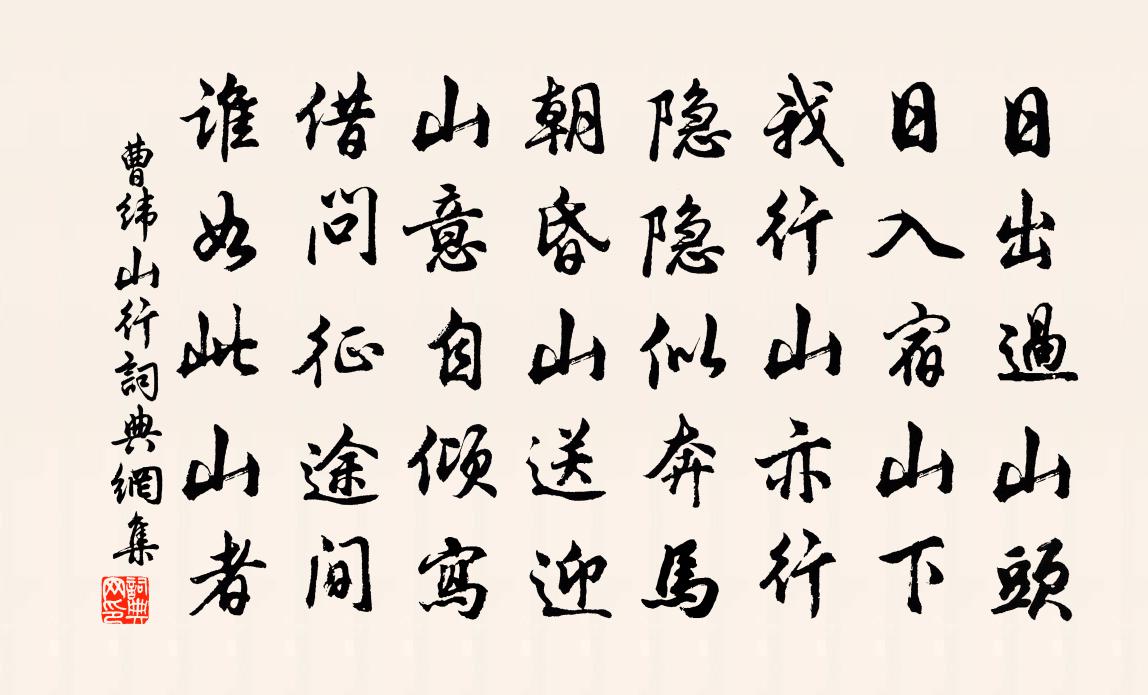 日出過山頭
日入宿山下
我行山亦行
隐隐似奔馬
朝昏山送迎
山意自傾寫
借问征途间
谁如此山者
曹緯山行詞典網集
詞典